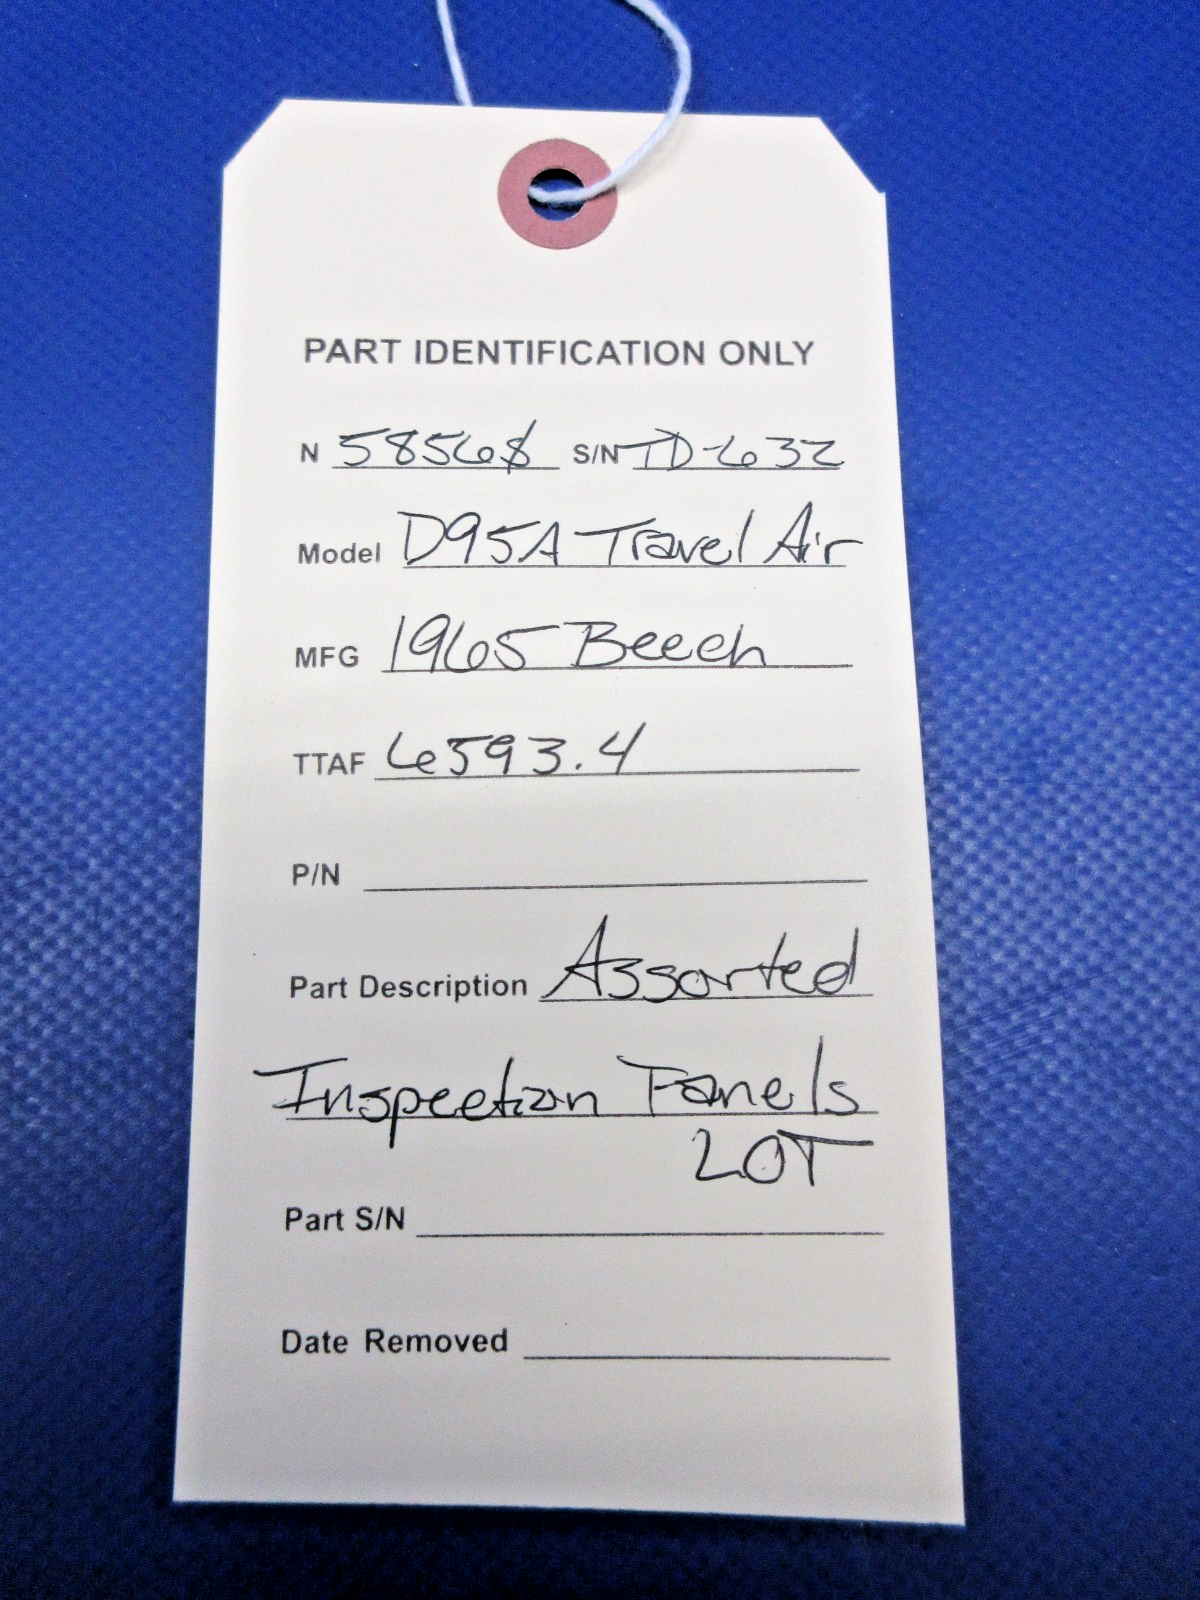 PART IDENTIFICATION ONLY
N 5856S S/N TD-632
Model D95A Travel Air
MFG 1965 Beech
TTAF 6593.4
P/N
Part Description Assorted
Inspection Panels
LOT
Part S/N
Date Removed